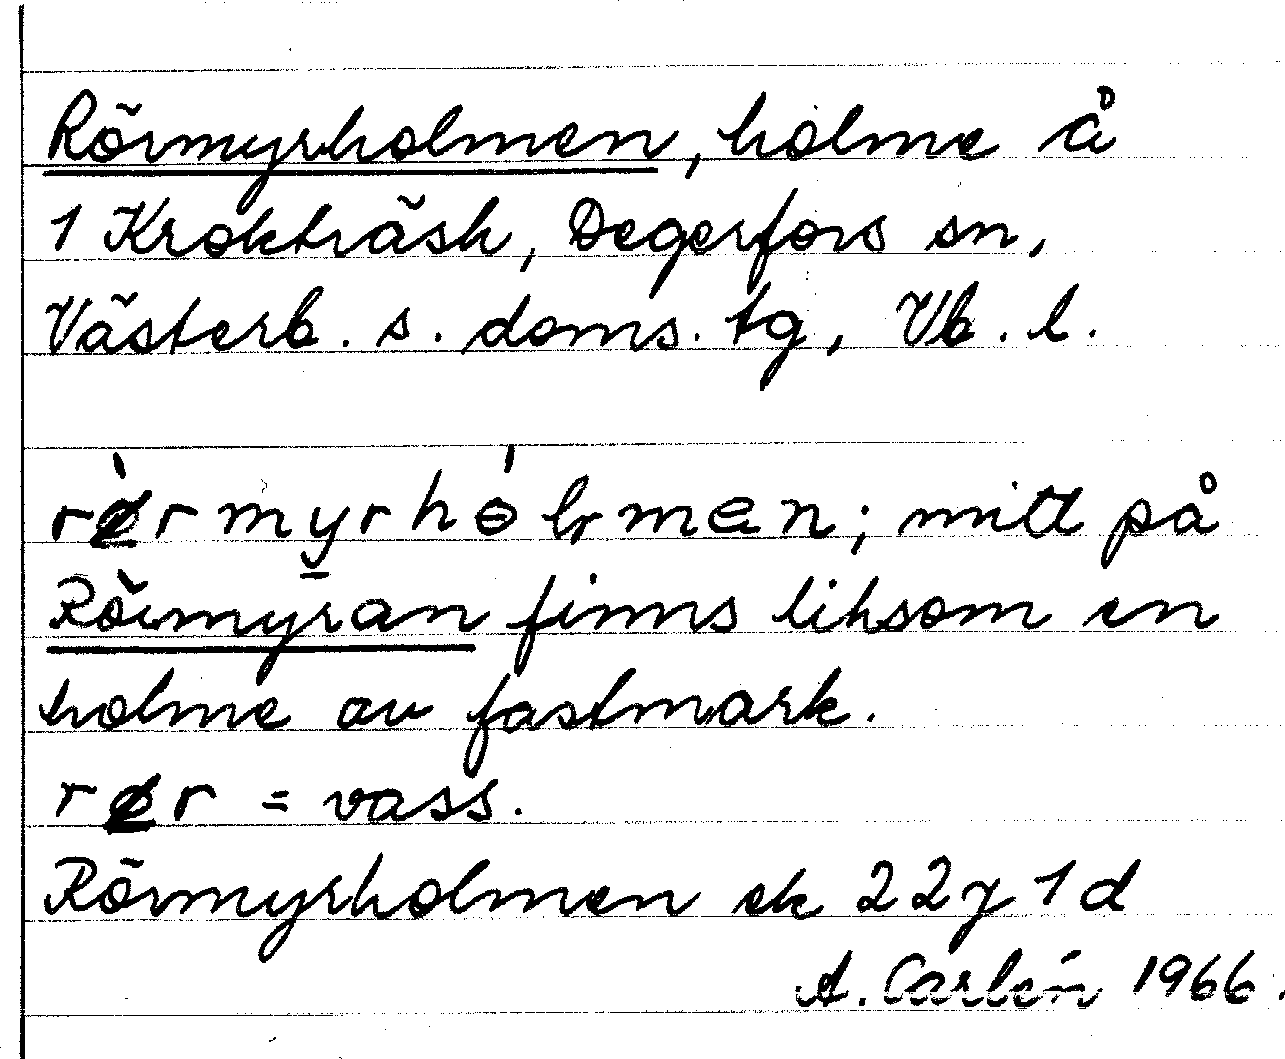 Rörmyrholmen, holme å
1 Krokträsk, Degerfors sn,
Västerb. s. doms. tg, Vb. l.
mitt på
Rörmyran finns liksom en
holme av fastmark.
rør = vass.
Rörmyrholmen ek 22 J 1 d
A. Carlén 1966.